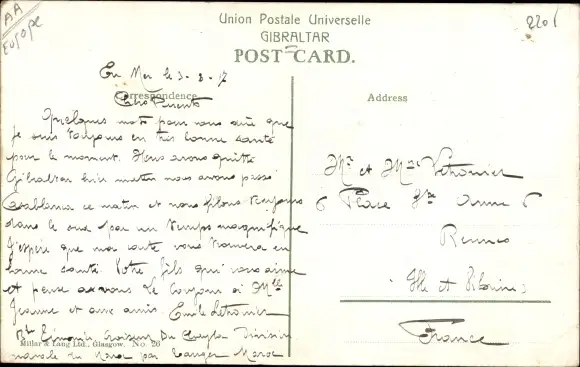 AA
Europe
2201
Union Postale Universelle
GIBRALTAR
POST CARD.
En Mer le 3-8-17
Correspondence
Chers Parents
Quelques mots pour vous dire que
je suis toujours en très bonne santé
pour le moment. Nous avons quitté
Gibraltar hier matin nous avons passé
Casablanca ce matin et nous filons toujours
dans le sud par un temps magnifique
J'espère que ma carte vous trouvera en
bonne santé. Votre fils qui vous aime
et pense à vous Le bonjour à Mlle
Jeanne et aux amis. Emile
Croiseur Du Chayla Division
navale du Maroc par Tanger Maroc
Millar & Lang Ltd., Glasgow. No. 26
Address
Mr et Mme
6 Place Ste Anne 6
Rennes
Ille et Vilaine
France